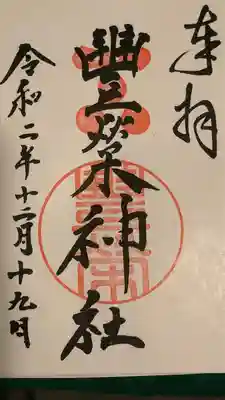 奉拝
豊榮神社
令和二年十二月十九日